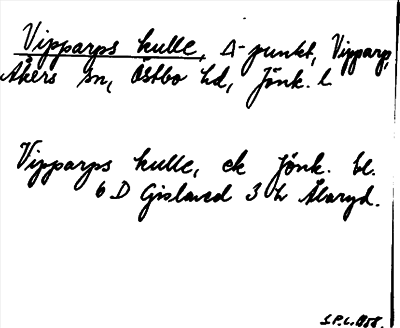 Vipparps kulle, Δ-punkt, Vipparp,
Åkers sn, Östbo hd, Jönk. l.
Vipparps kulle, ek Jönk. bl.
6 D Gislaved 3 h Ålaryd.
S.P.L. 1958.